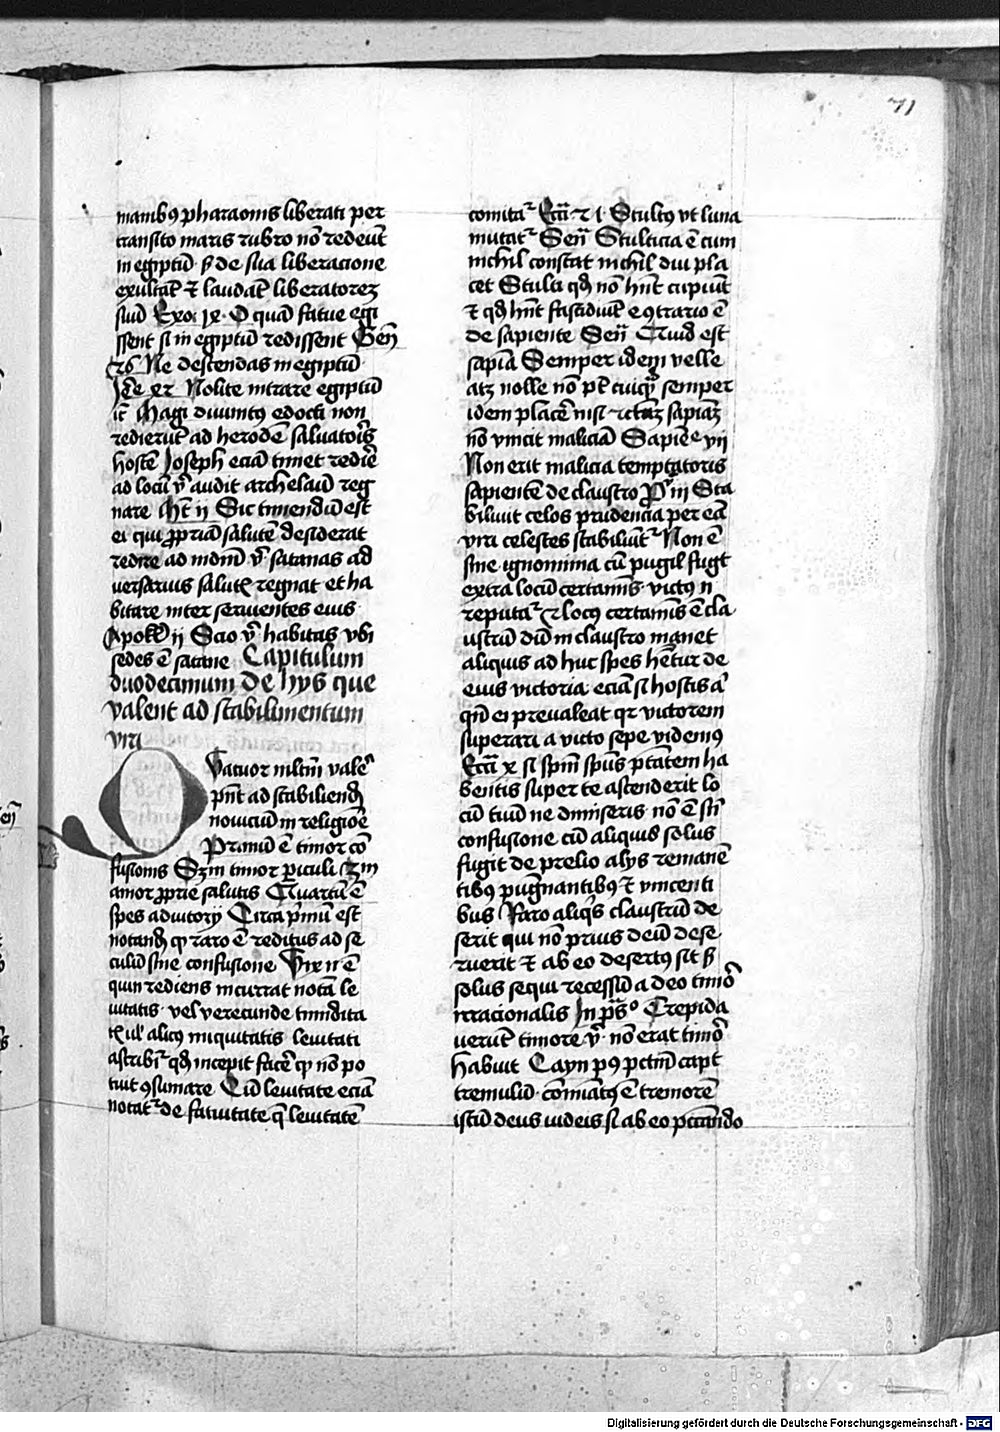 71
manibꝯ pharaonis liberati per
transito maris rubro nō redeūt
in egiptū ꝫ de sua liberacione
exultāt ⁊ laudāt liberatorem
suū Exo. ix. O quā fatue egi
ssent si in egiptū redissent Gen̄
26 Ne descendas in egiptū
Je͞re 42 Nolite intrare egiptū
it̄ Magi diuinitꝯ edocti non
redierūt ad herodē saluatoris
hostē Joseph eciā timet redir̄e
ad locū vͥ audit archelaū reg
nare Mt̄ ii Sic timendū est
ei qui ꝓpriā salutē desiderat
redire ad mdm̄ vͥ satanas ad
uersarius salutꝭ regnat et ha
bitare inter seruientes eius
Apok̄ ii Scio vͥ habitas vbi
sedes ē satane Capitulum
duodecimum De hijs que
valent ad stabilimentum
viri
Quatuor mltm̄ valer̄e
pn̄t ad stabiliend̄
nouiciū in religiōe
Pramū ē timor cō
fusionis Scd̄m timor ꝑiculi 3m
amor ꝓprie salutis Quartū ē
spes adiutorij Circa pͥmū est
notand̄ qꝫ raro ē reditus ad se
culū sine confusione Vix n̄ ē
quin rediens incurrat notā le
uitatis vel verecunde timidita
tꝭ ul̄ alicꝯ iniquitatis leuitati
ascribit᷑ qd̄ incepit facēr qꝫ nō po
tuit ꝯsumare Cū leuitate eciā
notat᷑ de fatuitate q̄ leuitatē
comitat᷑ Ecc̄i 27 Stultꝯ vt luna
mutat᷑ Sen̄ Stulticia ē cum
nichil constat nichil diu pla
cet Stulti qd̄ nō hn̄t cupiūt
⁊ qd̄ hn̄t fastidiūt e ꝯtrario ē
de sapiente Sen̄ Quid est
sapīa Semper idem velle
atqꝫ nolle nō pt̄ cuiqͣꝫ semper
idem placēr nisi rctū sapiāꝫ
nō vincit maliciā Sapīe vii
Non erit malicia temptatoris
sapientē de claustro Pͬ iii Sta
biliuit celos prudencia per eā
viri celestes stabiliūt᷑ Non ē
sine ignominia cū pugil fugt
extra locū certaminis victꝯ n̄
reputat᷑ ⁊ locꝯ certaminis ē cla
ustrū dū in claustro manet
aliquis ad huc spes hēt᷑ur de
eius victoria eciā si hostis aͥ
qn̄ ei preualeat qꝛ victorem
superari a victo sepe videmꝯ
Ecc̄i x Si spm̄ spūs ptātem ha
bentis super te ascenderit lo
cū tuū ne dimiseris nō ē sn̄
confusione cū aliquis solus
fugit de prelio alijs remanē
tibꝯ pugnantibꝯ ⁊ vincenti
bus Raro aliqͥs claustrū de
serit qui nō prius deū dese
ruerit ⁊ ab eo desertꝯ sit sꝫ
solus sequi recessū a deo timōr
irracionalis In pͣsͦ Trepida
uerūt timore vͥ nō erat timōr
habuit Cayn pꝯ pctm̄ capt
tremulū cōmiatꝯ ē tremorē
istū deus uideis si ab eo pctādo
Digitalisierung gefördert durch die Deutsche Forschungsgemeinschaft - DFG